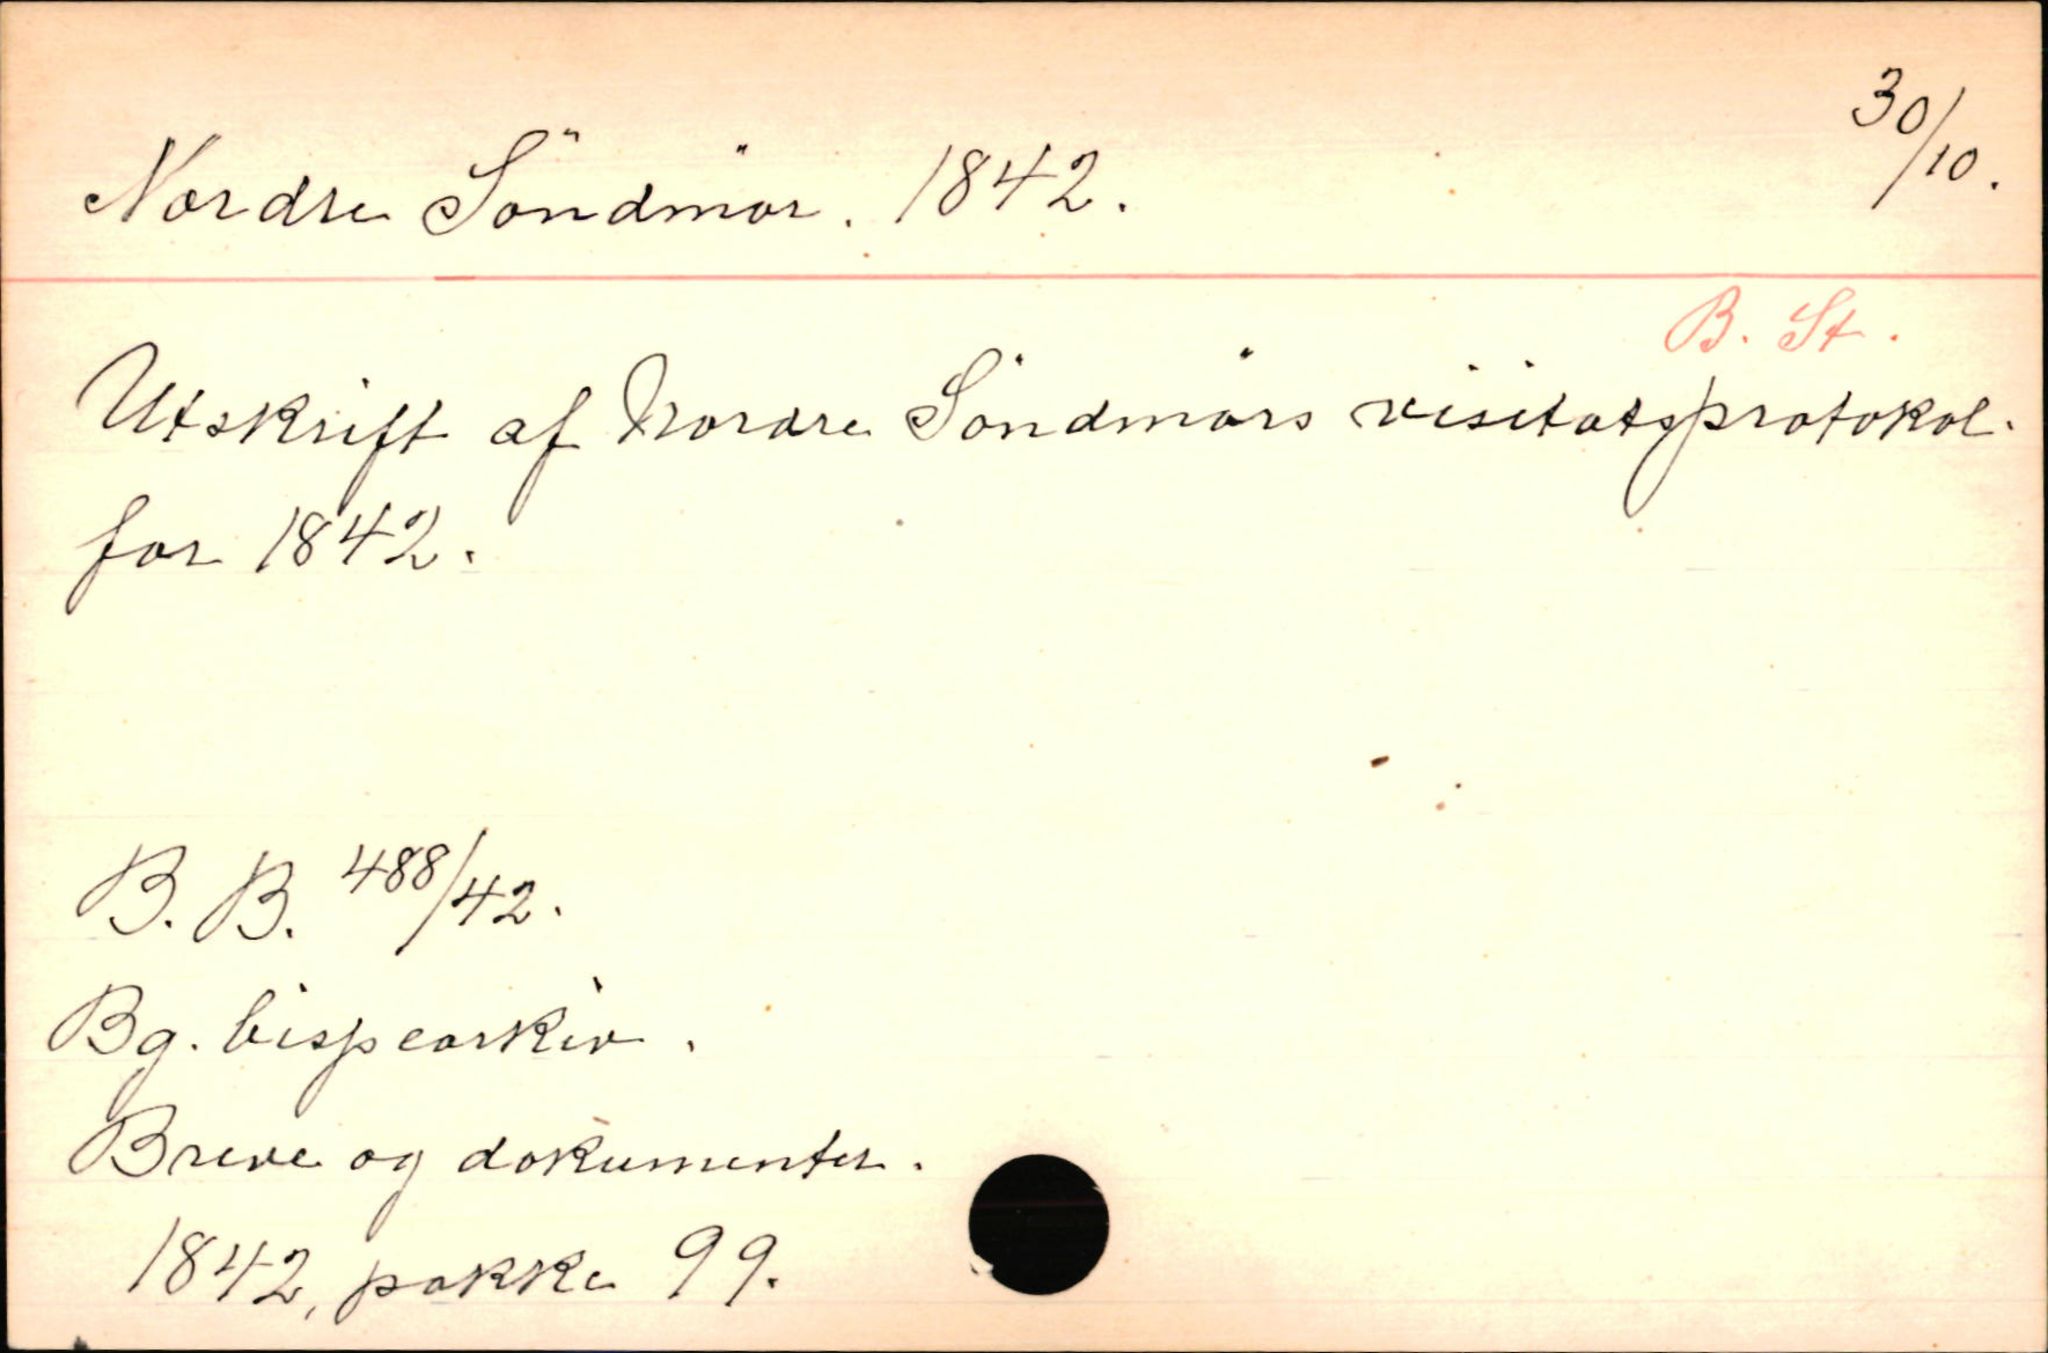 30/10.
Nordre Söndmör. 1842.
B. St.
Utskrift af Nordre Söndmörs visitatsprotokol.
for 1842.
B. B. 488/42.
Bg. bispearkiv.
Breve og dokumenter.
1842, pakke 99.